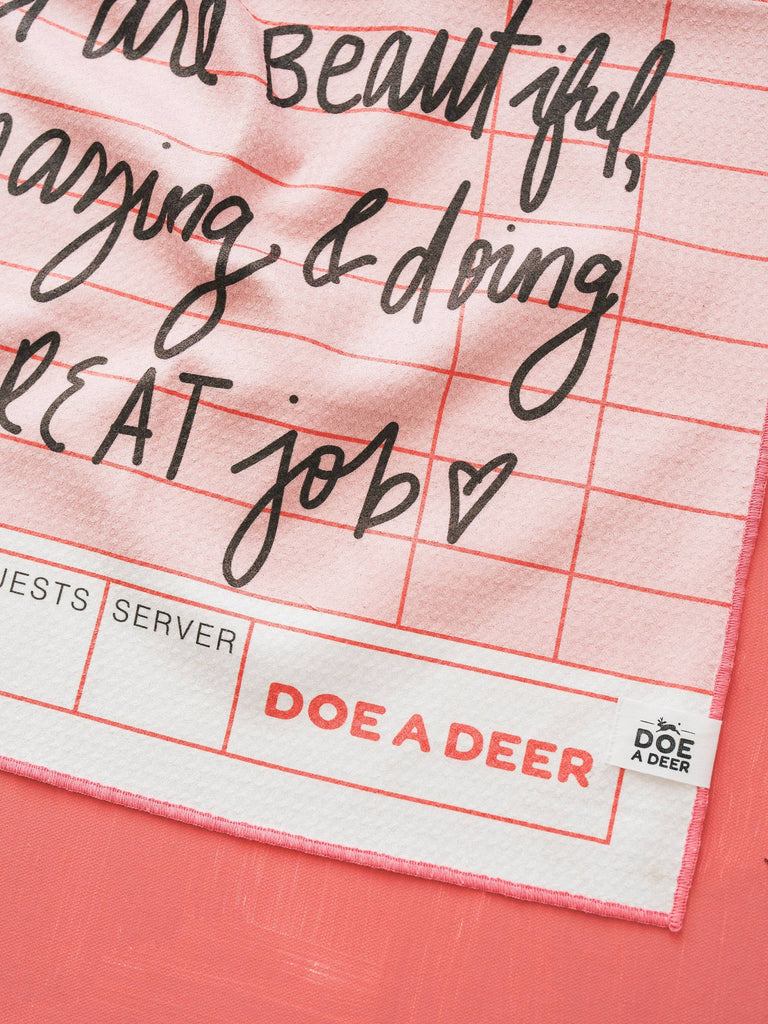 are Beautiful,
mazing & doing
REAT job
UESTS SERVER
DOE A DEER
DOE
A DEER